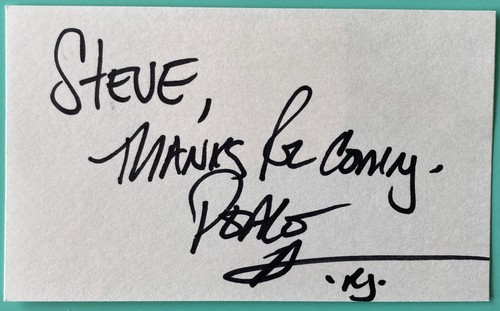 STEVE,
THANKS FOR COMING.
PEACE